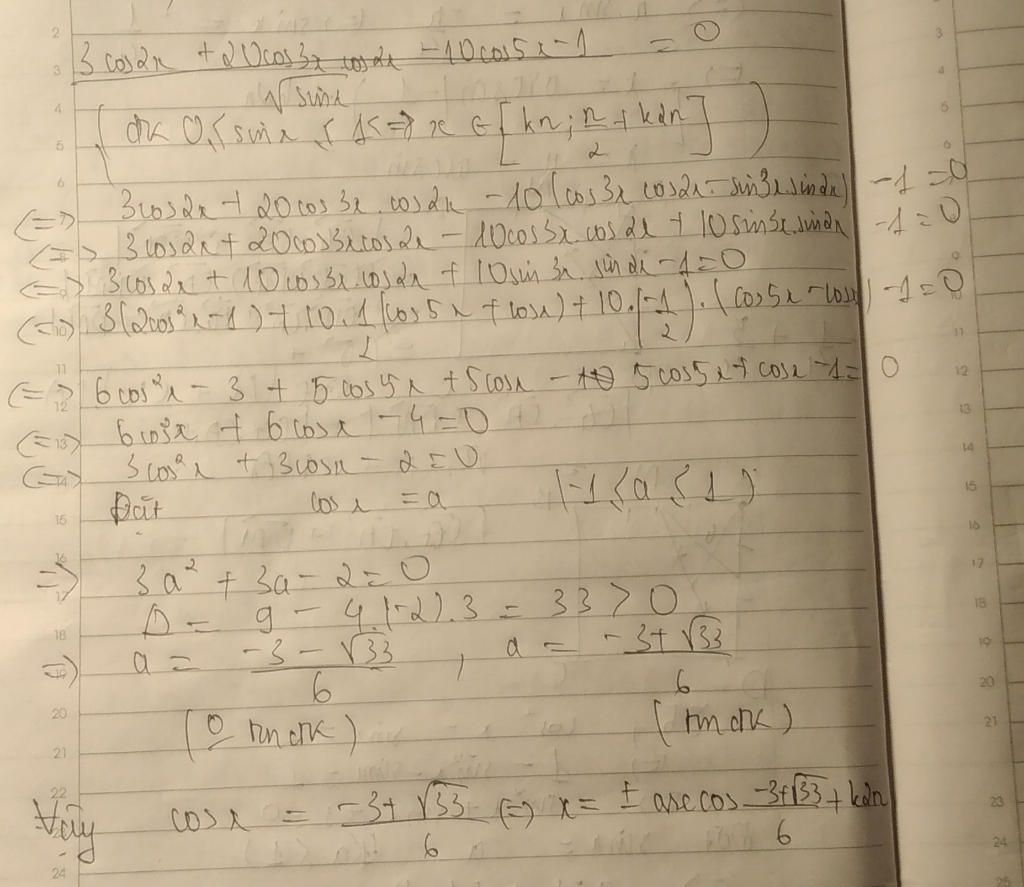 3cos2x + 20cos3x cos2x - 10cos5x - 1 = 0
√sinx
(ĐK 0 ≤ sinx ≤ 1 <=> x ∈ [kπ; π/2 + k2π])
<=> 3cos2x + 20cos3x.cos2x - 10(cos3x cos2x - sin3x.sin2x) - 1 = 0
<=> 3cos2x + 20cos3xcos2x - 10cos3x.cos2x + 10sin3x.sin2x - 1 = 0
<=> 3cos2x + 10cos3x.cos2x + 10sin3x.sin2x - 1 = 0
<=> 3(2cos²x - 1) + 10.1/2(cos5x + cosx) + 10.(-1/2).(cos5x - cosx) - 1 = 0
<=> 6cos²x - 3 + 5cos5x + 5cosx - 5cos5x + cosx - 1 = 0
<=> 6cos²x + 6cosx - 4 = 0
<=> 3cos²x + 3cosx - 2 = 0
Đặt cosx = a (-1 ≤ a ≤ 1)
=> 3a² + 3a - 2 = 0
Δ = 9 - 4.(-2).3 = 33 > 0
=> a = (-3 - √33)/6 , a = (-3 + √33)/6
(0 tmđk) (tmđk)
Vậy cosx = (-3 + √33)/6 <=> x = ± arccos (-3+√33)/6 + k2π